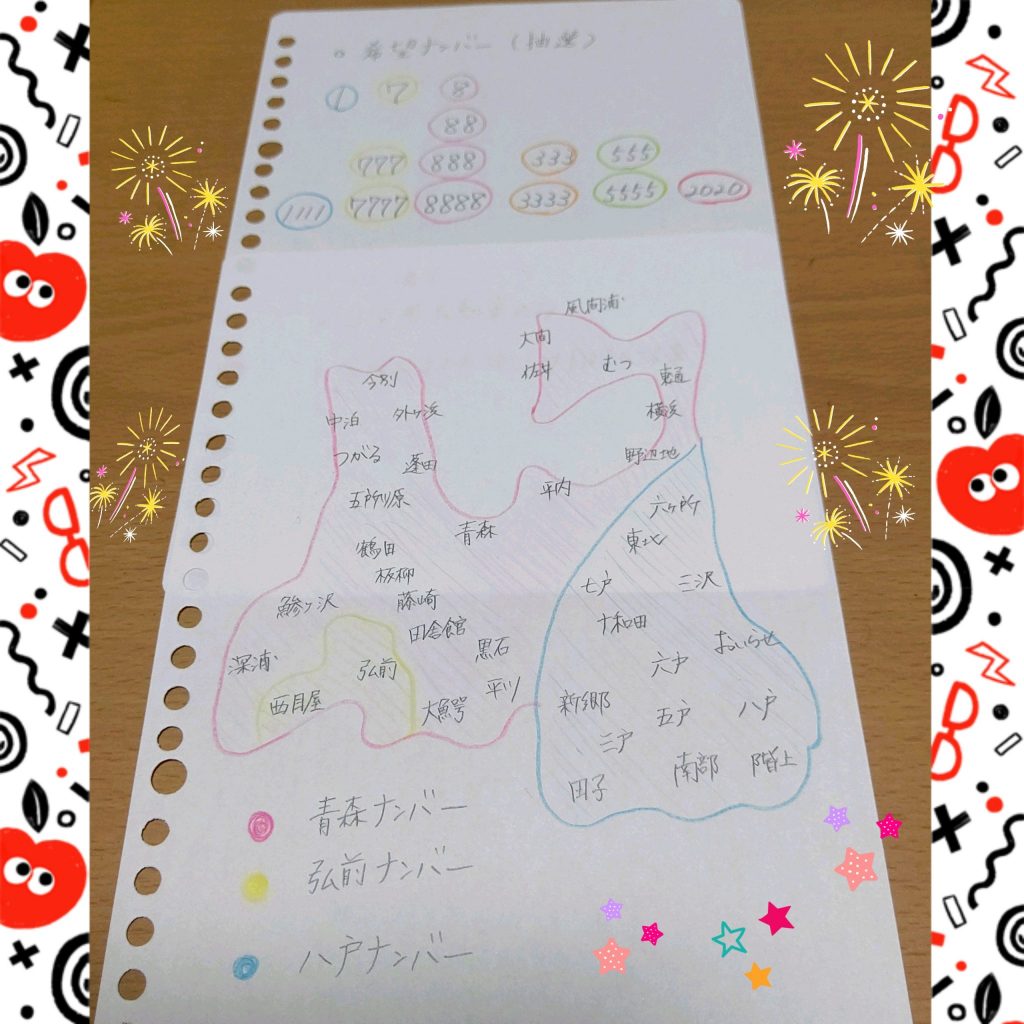 。希望ナンバー(抽選)
1 7 8
88
777 888 333 555
1111 7777 8888 3333 5555 2020
風間浦
大間
佐井 むつ 東通
今別
中泊 外ヶ浜 横浜
つがる 蓬田 野辺地
五所川原 平内 六ヶ所
青森 東北
鶴田
板柳 七戸 三沢
鰺ヶ沢 藤崎 十和田
田舎館 黒石 おいらせ
深浦 弘前 六戸
西目屋 大鰐 平川 新郷 五戸 八戸
三戸 南部 階上
田子
青森ナンバー
弘前ナンバー
八戸ナンバー